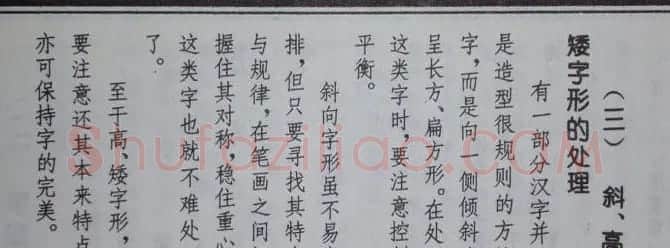 （三） 斜、高
矮字形的处理
有一部分汉字并
是造型很规则的方
字，而是向一侧倾斜
呈长方、扁方形。在处
这类字时，要注意控
平衡。
斜向字形虽不易
排，但只要寻找其特
与规律，在笔画之间
握住其对称，稳住重心
这类字也就不难处
了。
至于高、矮字形，
要注意还其本来特点
亦可保持字的完美。
Shufaziliao.com